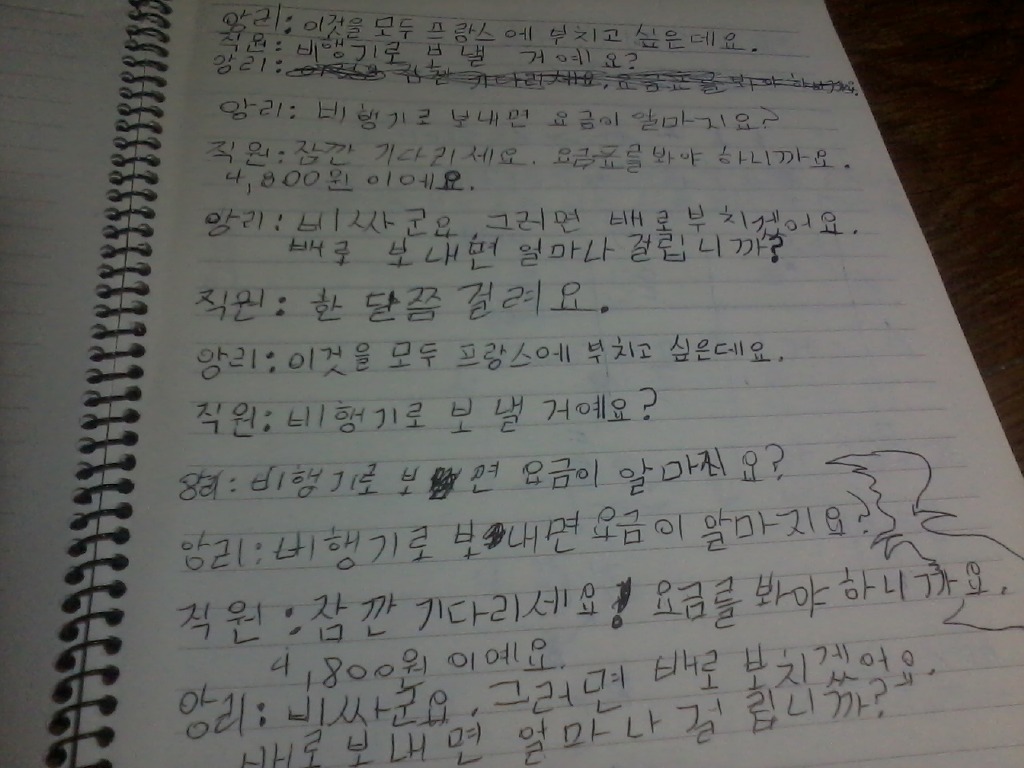 앙리: 이것을 모두 프랑스에 부치고 싶은데요.
직원: 비행기로 보낼 거예요?
앙리: 잠깐 기다리세요, 요금표를 봐야
앙리: 비행기로 보내면 요금이 얼마지요?
직원: 잠깐 기다리세요. 요금표를 봐야 하니까요.
4,800원 이에요.
앙리: 비싸군요. 그러면 배로 부치겠어요.
배로 보내면 얼마나 걸립니까?
직원: 한 달쯤 걸려요.
앙리: 이것을 모두 프랑스에 부치고 싶은데요.
직원: 비행기로 보낼 거예요?
비행기로 보 면 요금이 알마지요?
앙리: 비행기로 보내면 요금이 알마지요?
직원: 잠깐 기다리세요! 요금를 봐야 하니까요.
4,800원 이예요.
앙리: 비싸군요. 그러면 배로 보치겠어요.
배로 보내면 얼마나 걸립니까?